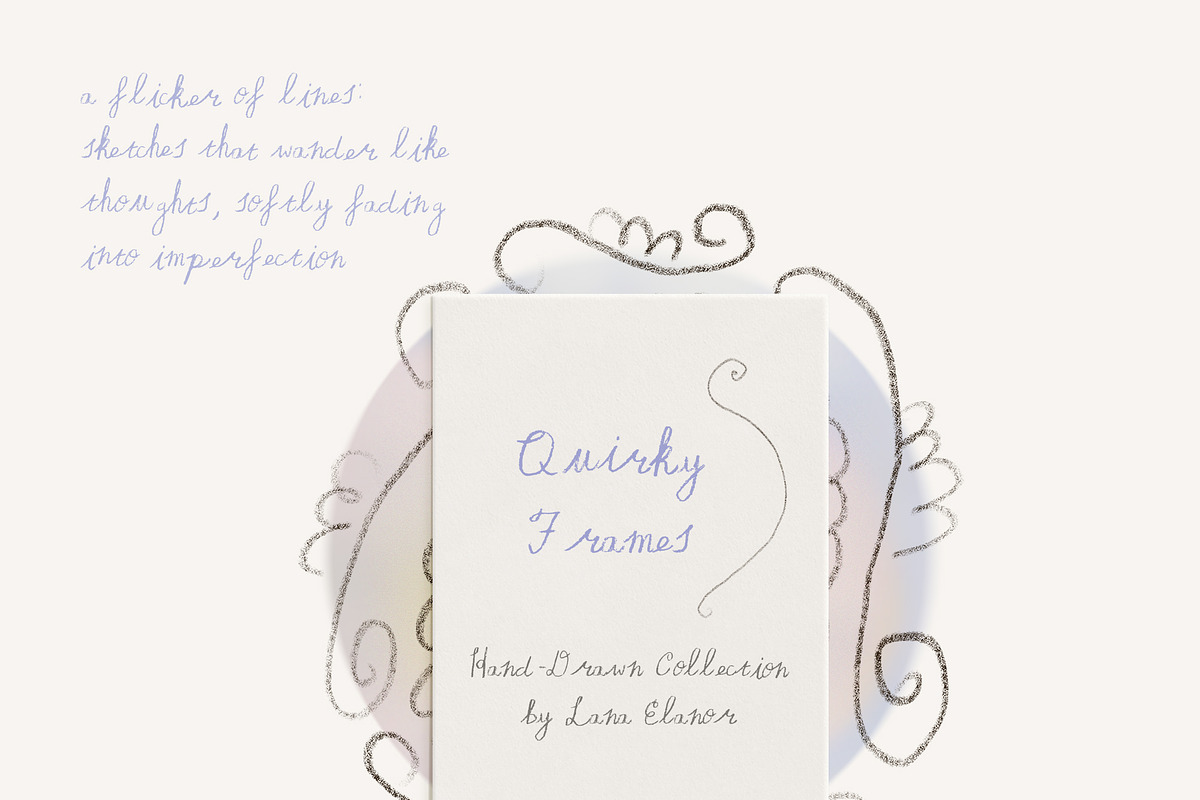 a flicker of lines:
sketches that wander like
thoughts, softly fading
into imperfection
Quirky
Frames
Hand-Drawn Collection
by Lana Elanor